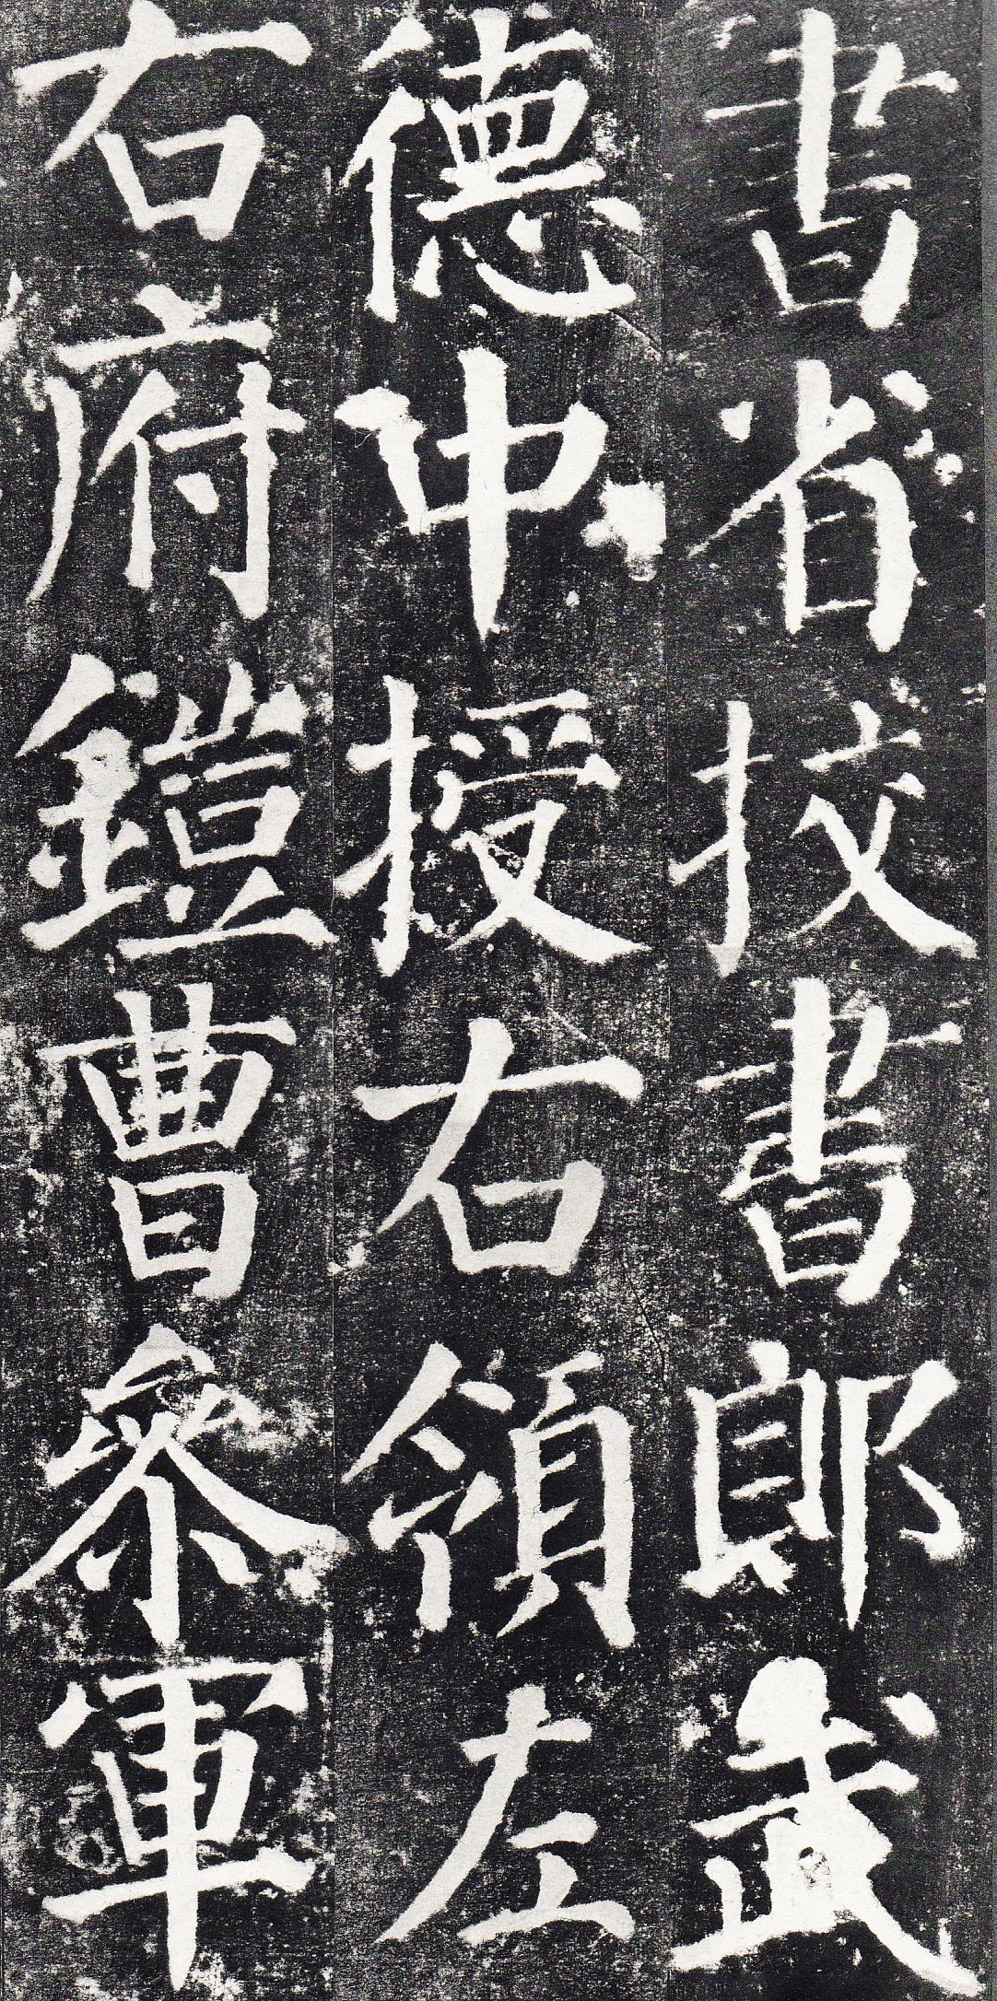 書省挍書郎武
德中授右領左
右府鎧曹參軍